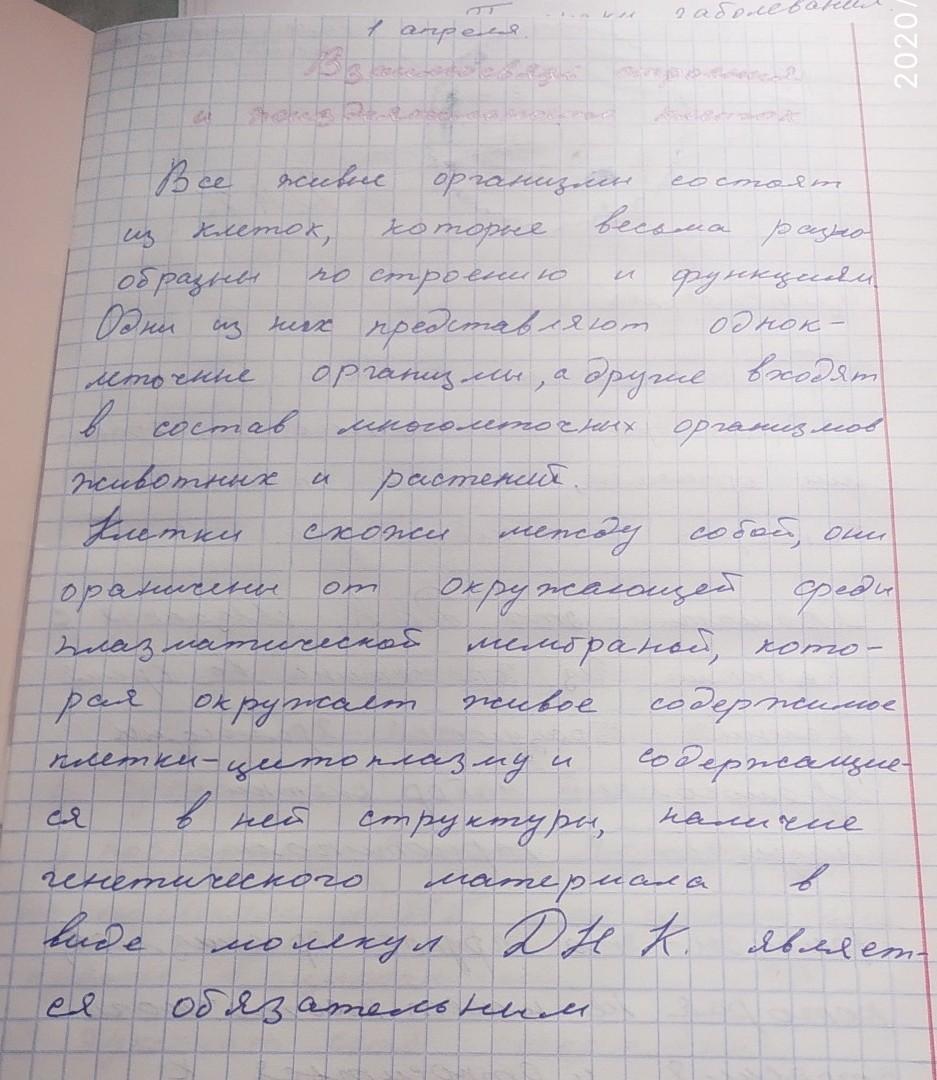 заболевания.
2020/
1 апреля.
Взаимосвязи строения
и жизнедеятельности клеток
Все живые организмы состоят
из клеток, которые весьма разно
образны по строению и функциям
Одни из них представляют однок-
леточные организмы, а другие входят
в состав многолеточных организмов
животных и растений.
Клетки схожи между собой, они
ораничены от окружающей среды
плазматической мембраной, кото-
рая окружает живое содержимое
клетки-цитоплазму и содержащие-
ся в ней структуры, наличие
генетического материала в
виде молекул ДНК. являет-
ся обязательным